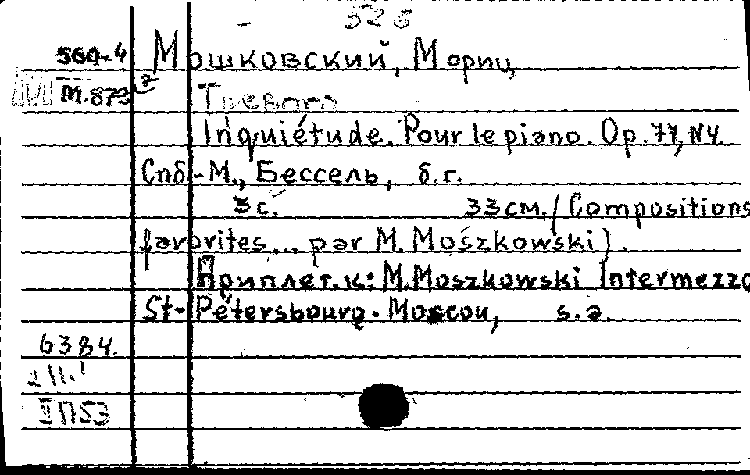 526
560-4 Мошковский, Мориц
М.873
Тревога
Inquiétude. Pour le piano. Op. 77, N4.
Спб-М., Бессель, б.г.
3с. 33см. (Compositions
favorites... par M. Moszkowski).
Приплет. к: M. Moszkowski Intermezzo
St-Pétersbourg. Moscou, s.a.
6384.